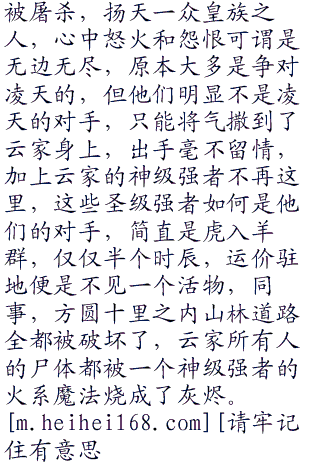 被屠杀，扬天一众皇族之
人，心中怒火和怨恨可谓是
无边无尽，原本大多是争对
凌天的，但他们明显不是凌
天的对手，只能将气撒到了
云家身上，出手毫不留情，
加上云家的神级强者不再这
里，这些圣级强者如何是他
们的对手，简直是虎入羊
群，仅仅半个时辰，运价驻
地便是不见一个活物，同
事，方圆十里之内山林道路
全都被破坏了，云家所有人
的尸体都被一个神级强者的
火系魔法烧成了灰烬。
[m.heihei168.com][请牢记
住有意思